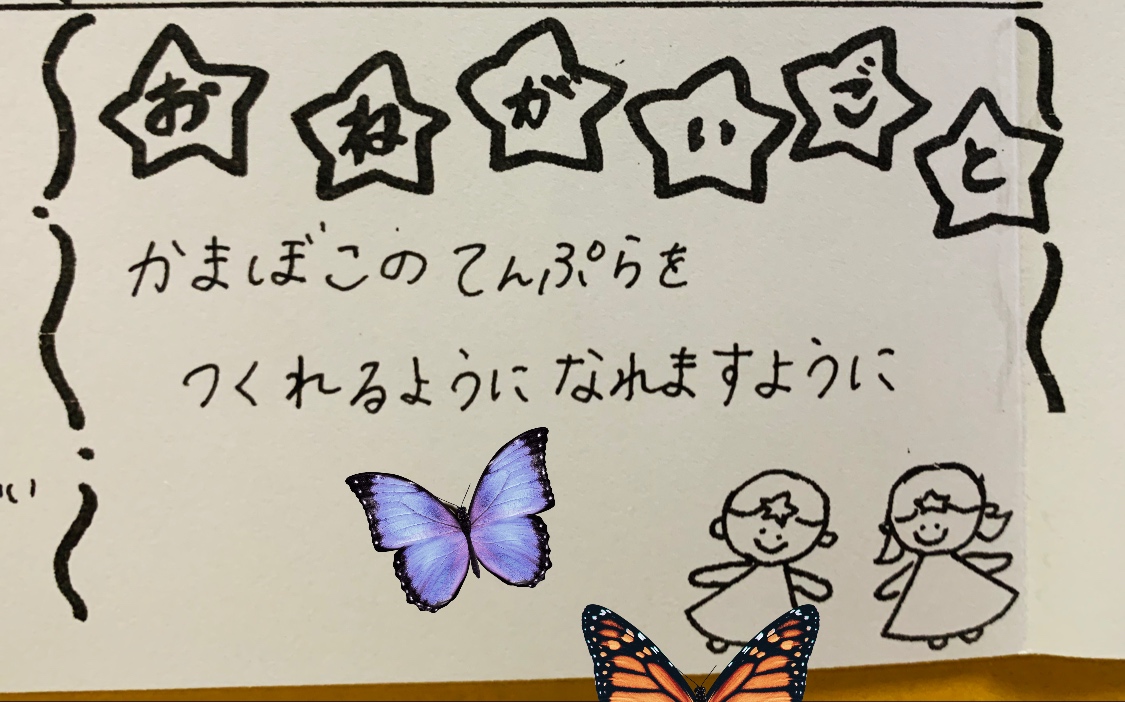 おねがいごと
かまぼこのてんぷらを
つくれるようになれますように